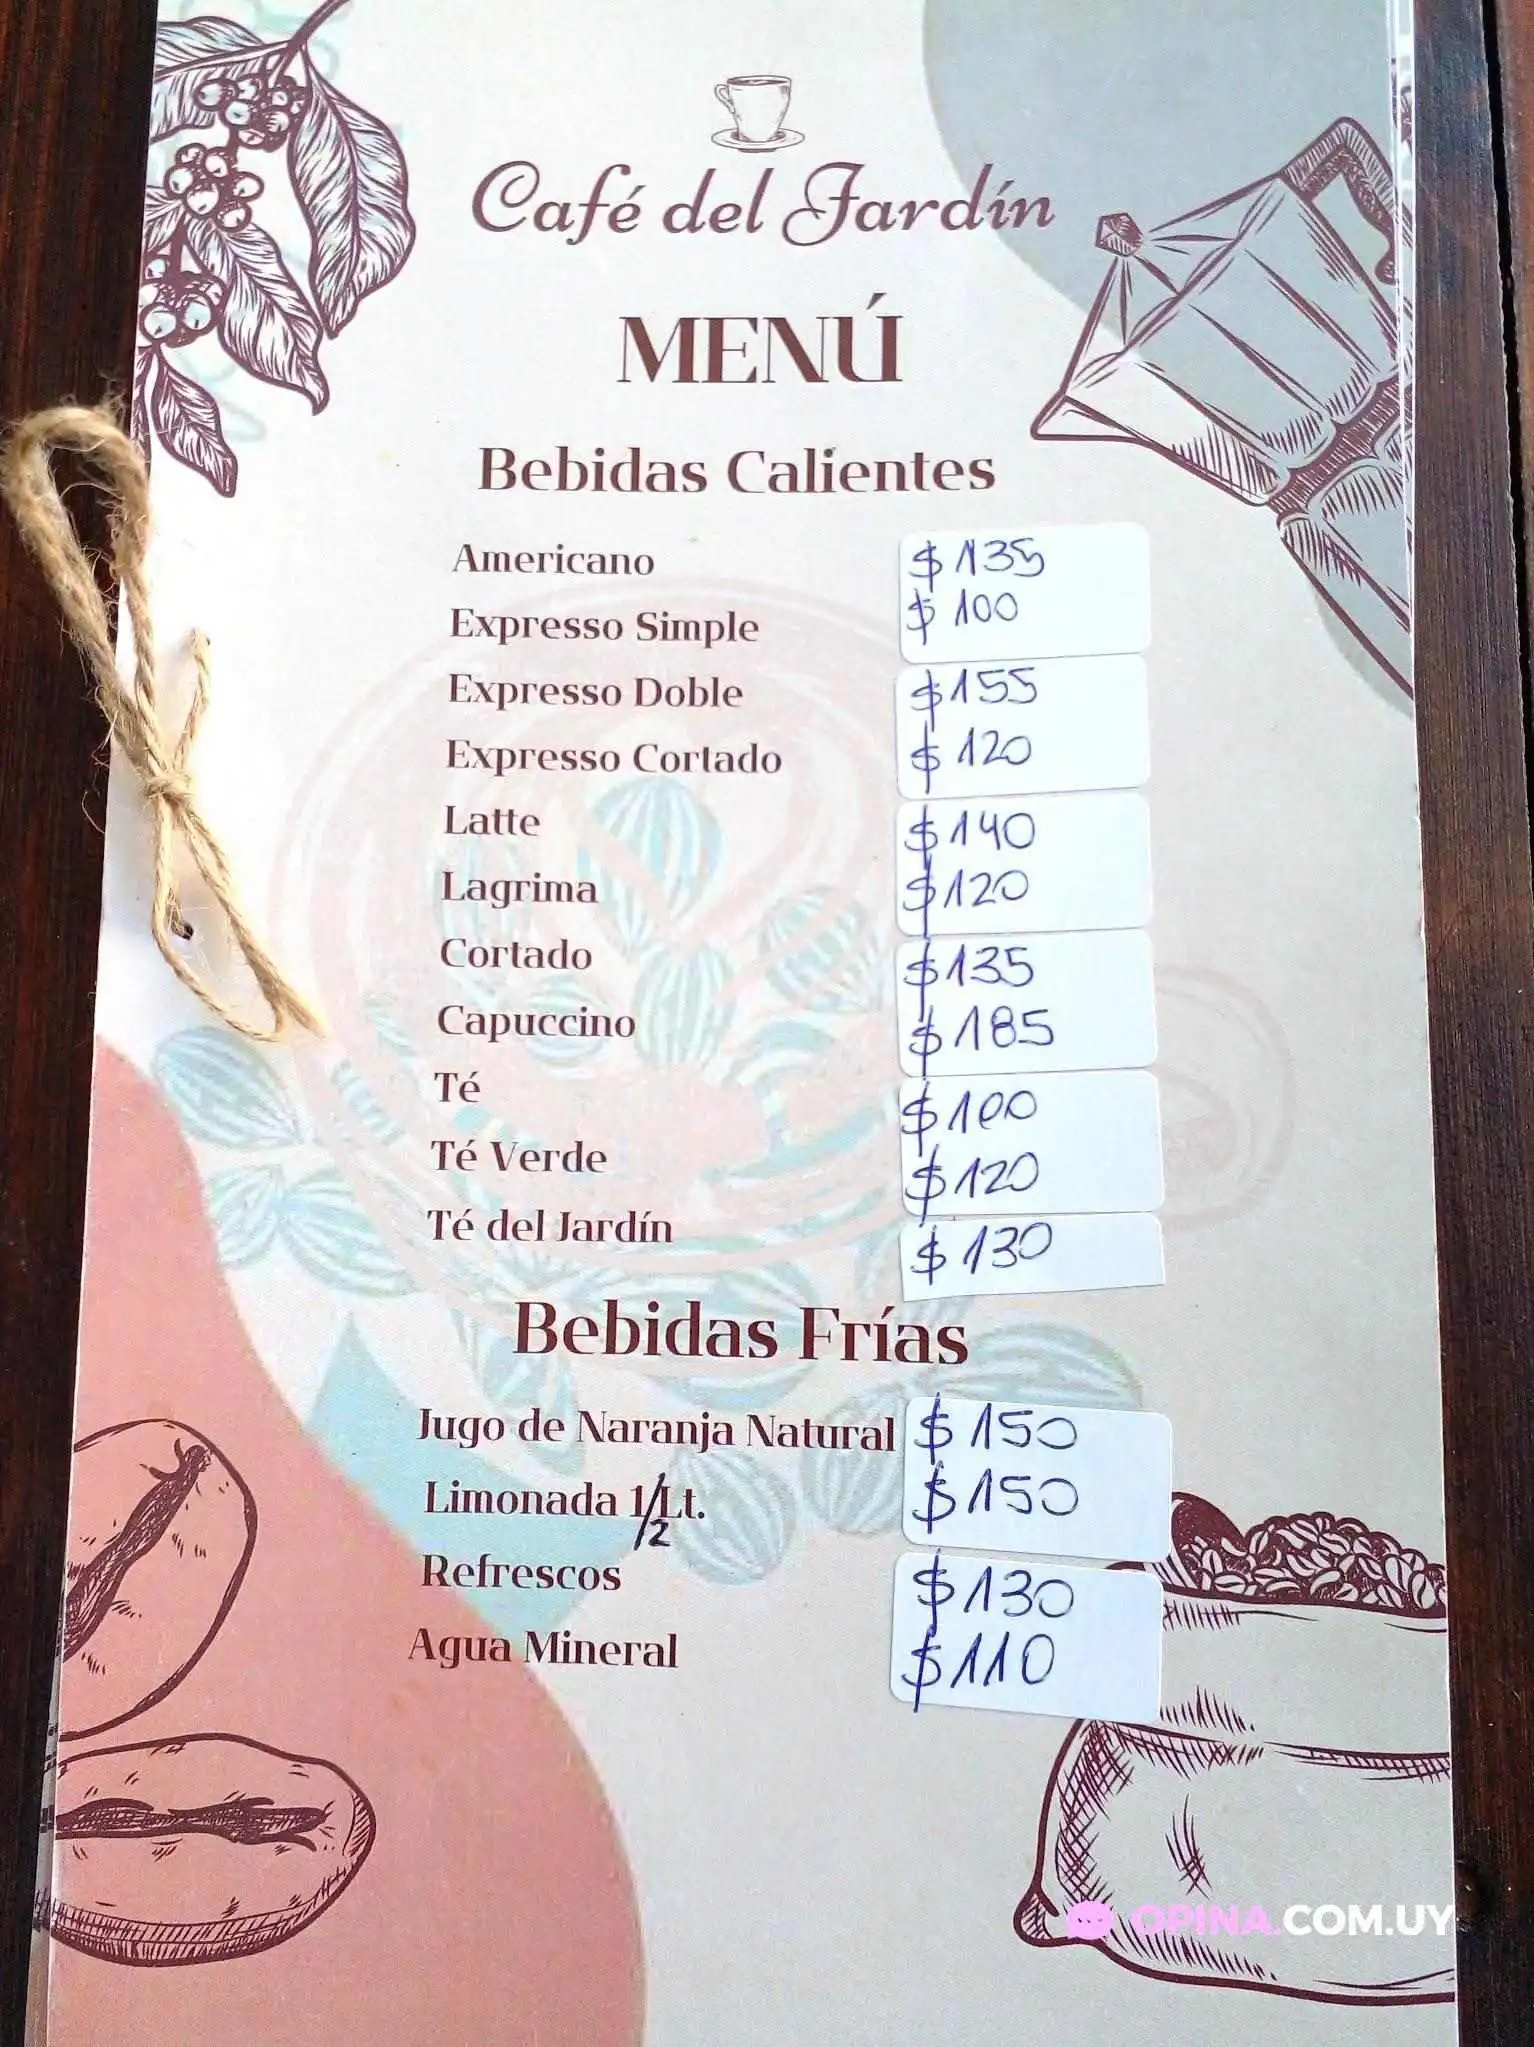 Café del Jardín
MENÚ
Bebidas Calientes
Americano $ 135
Expresso Simple $ 100
Expresso Doble $ 155
Expresso Cortado $ 120
Latte $ 140
Lagrima $ 120
Cortado $ 135
Capuccino $ 185
Té $ 100
Té Verde $ 120
Té del Jardín $ 130
Bebidas Frías
Jugo de Naranja Natural $ 150
Limonada 1/2 Lt. $ 150
Refrescos $ 130
Agua Mineral $ 110
OPINA.COM.UY